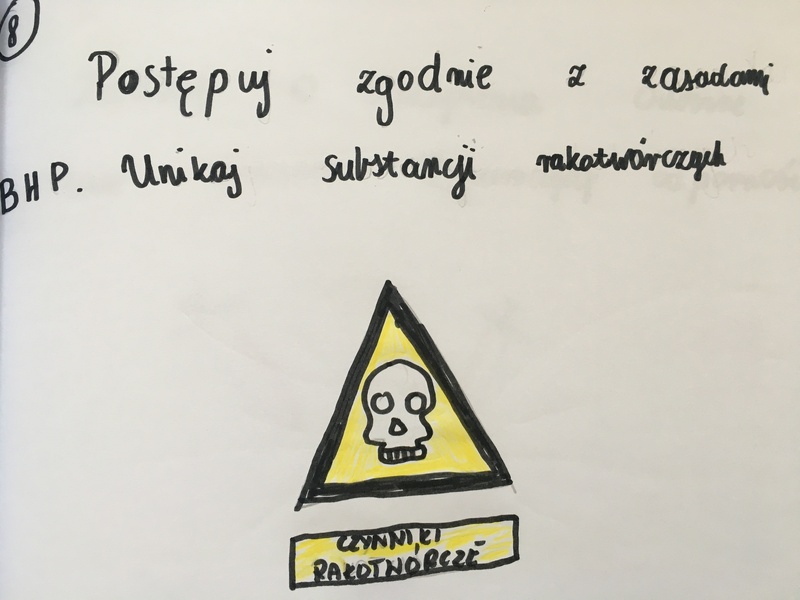 8
Postępuj zgodnie z zasadami
BHP. Unikaj substancji rakotwórczych
CZYNNIKI
RAKOTWÓRCZE